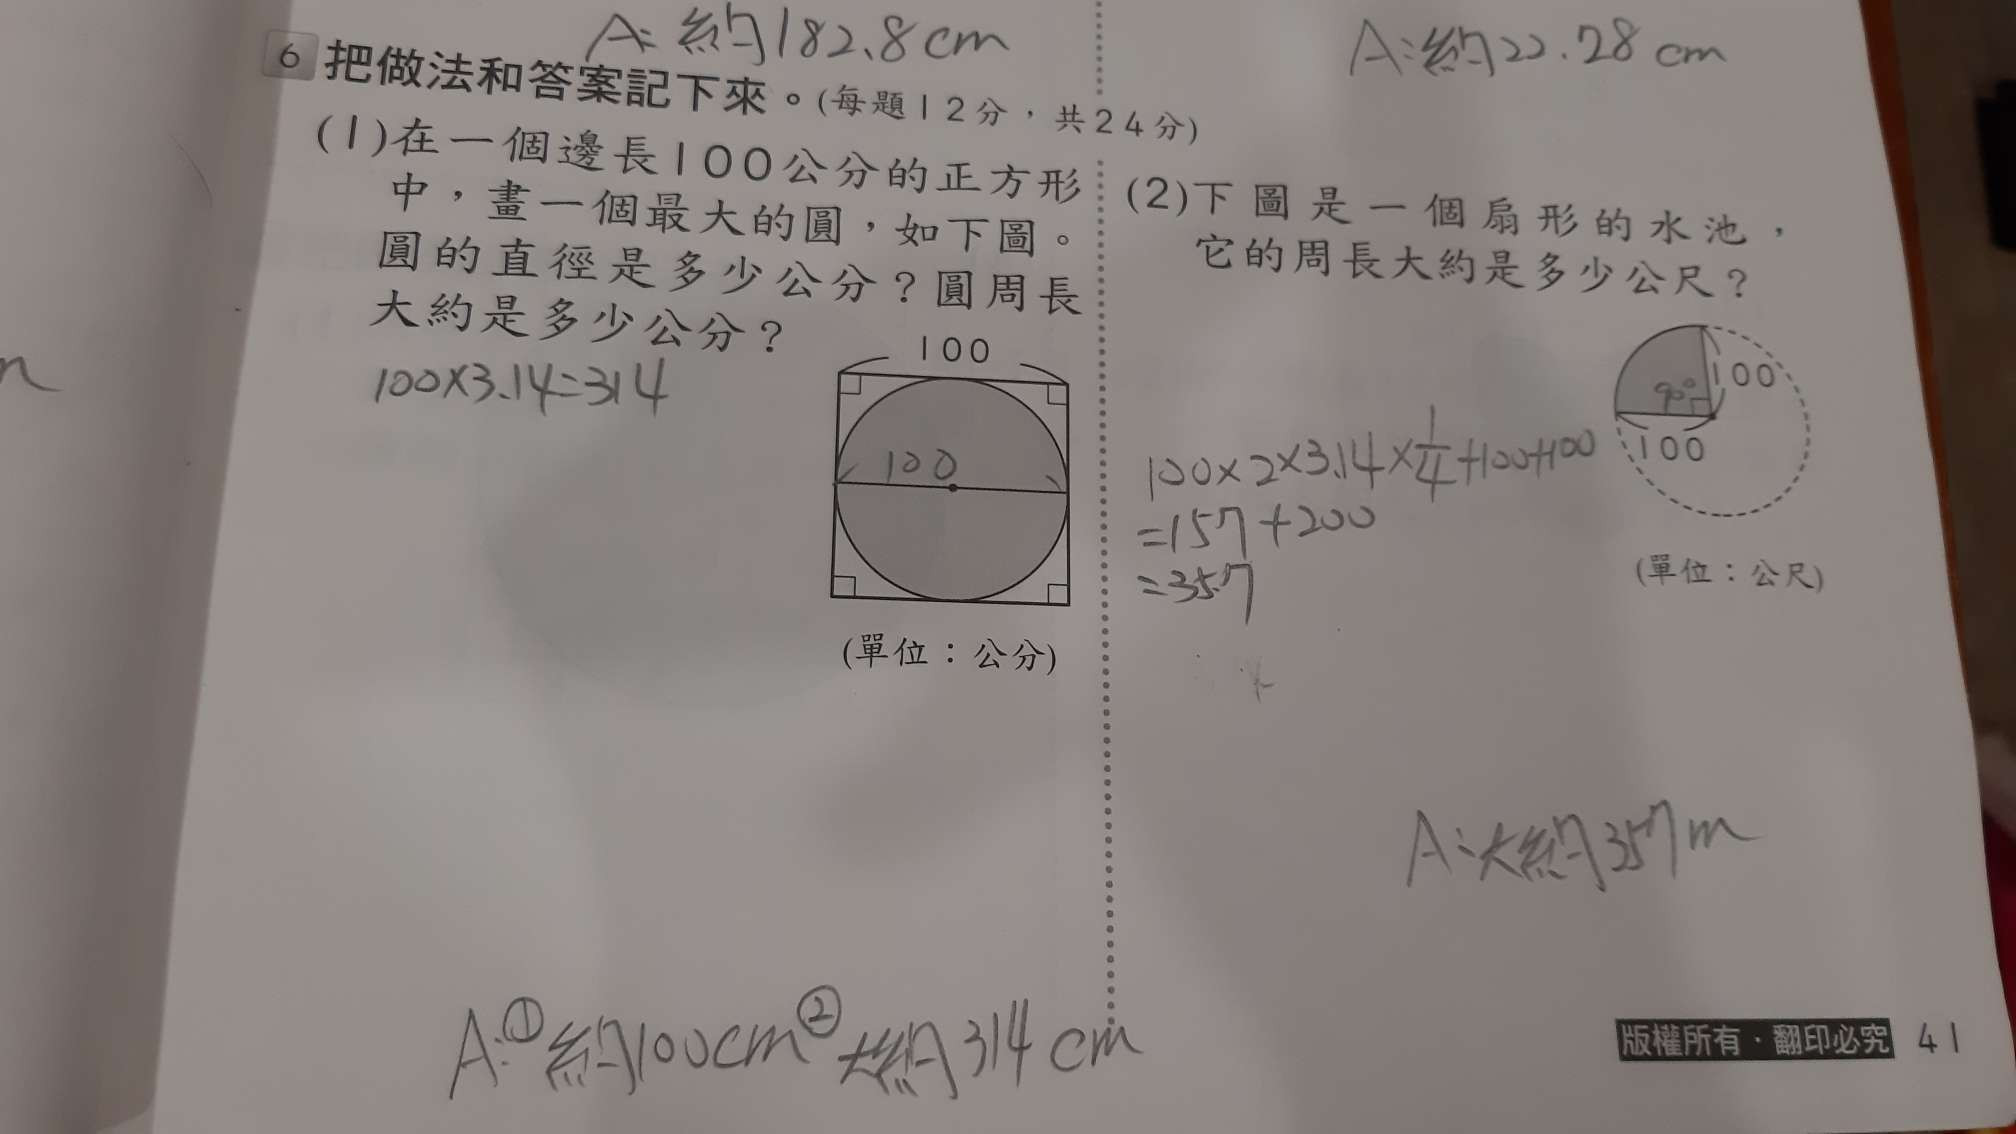 A: 約182.8cm
A:約22.28 cm
6 把做法和答案記下來。(每題12分,共24分)
(1)在一個邊長100公分的正方形
中,畫一個最大的圓,如下圖。
圓的直徑是多少公分?圓周長
大約是多少公分?
100×3.14=314
100
100
(單位:公分)
A:①約100cm②大約314cm
(2)下圖是一個扇形的水池,
它的周長大約是多少公尺?
100
90°
100
100×2×3.14×1/4+100+100
=157+200
=357
(單位:公尺)
A:大約357m
版權所有·翻印必究 41